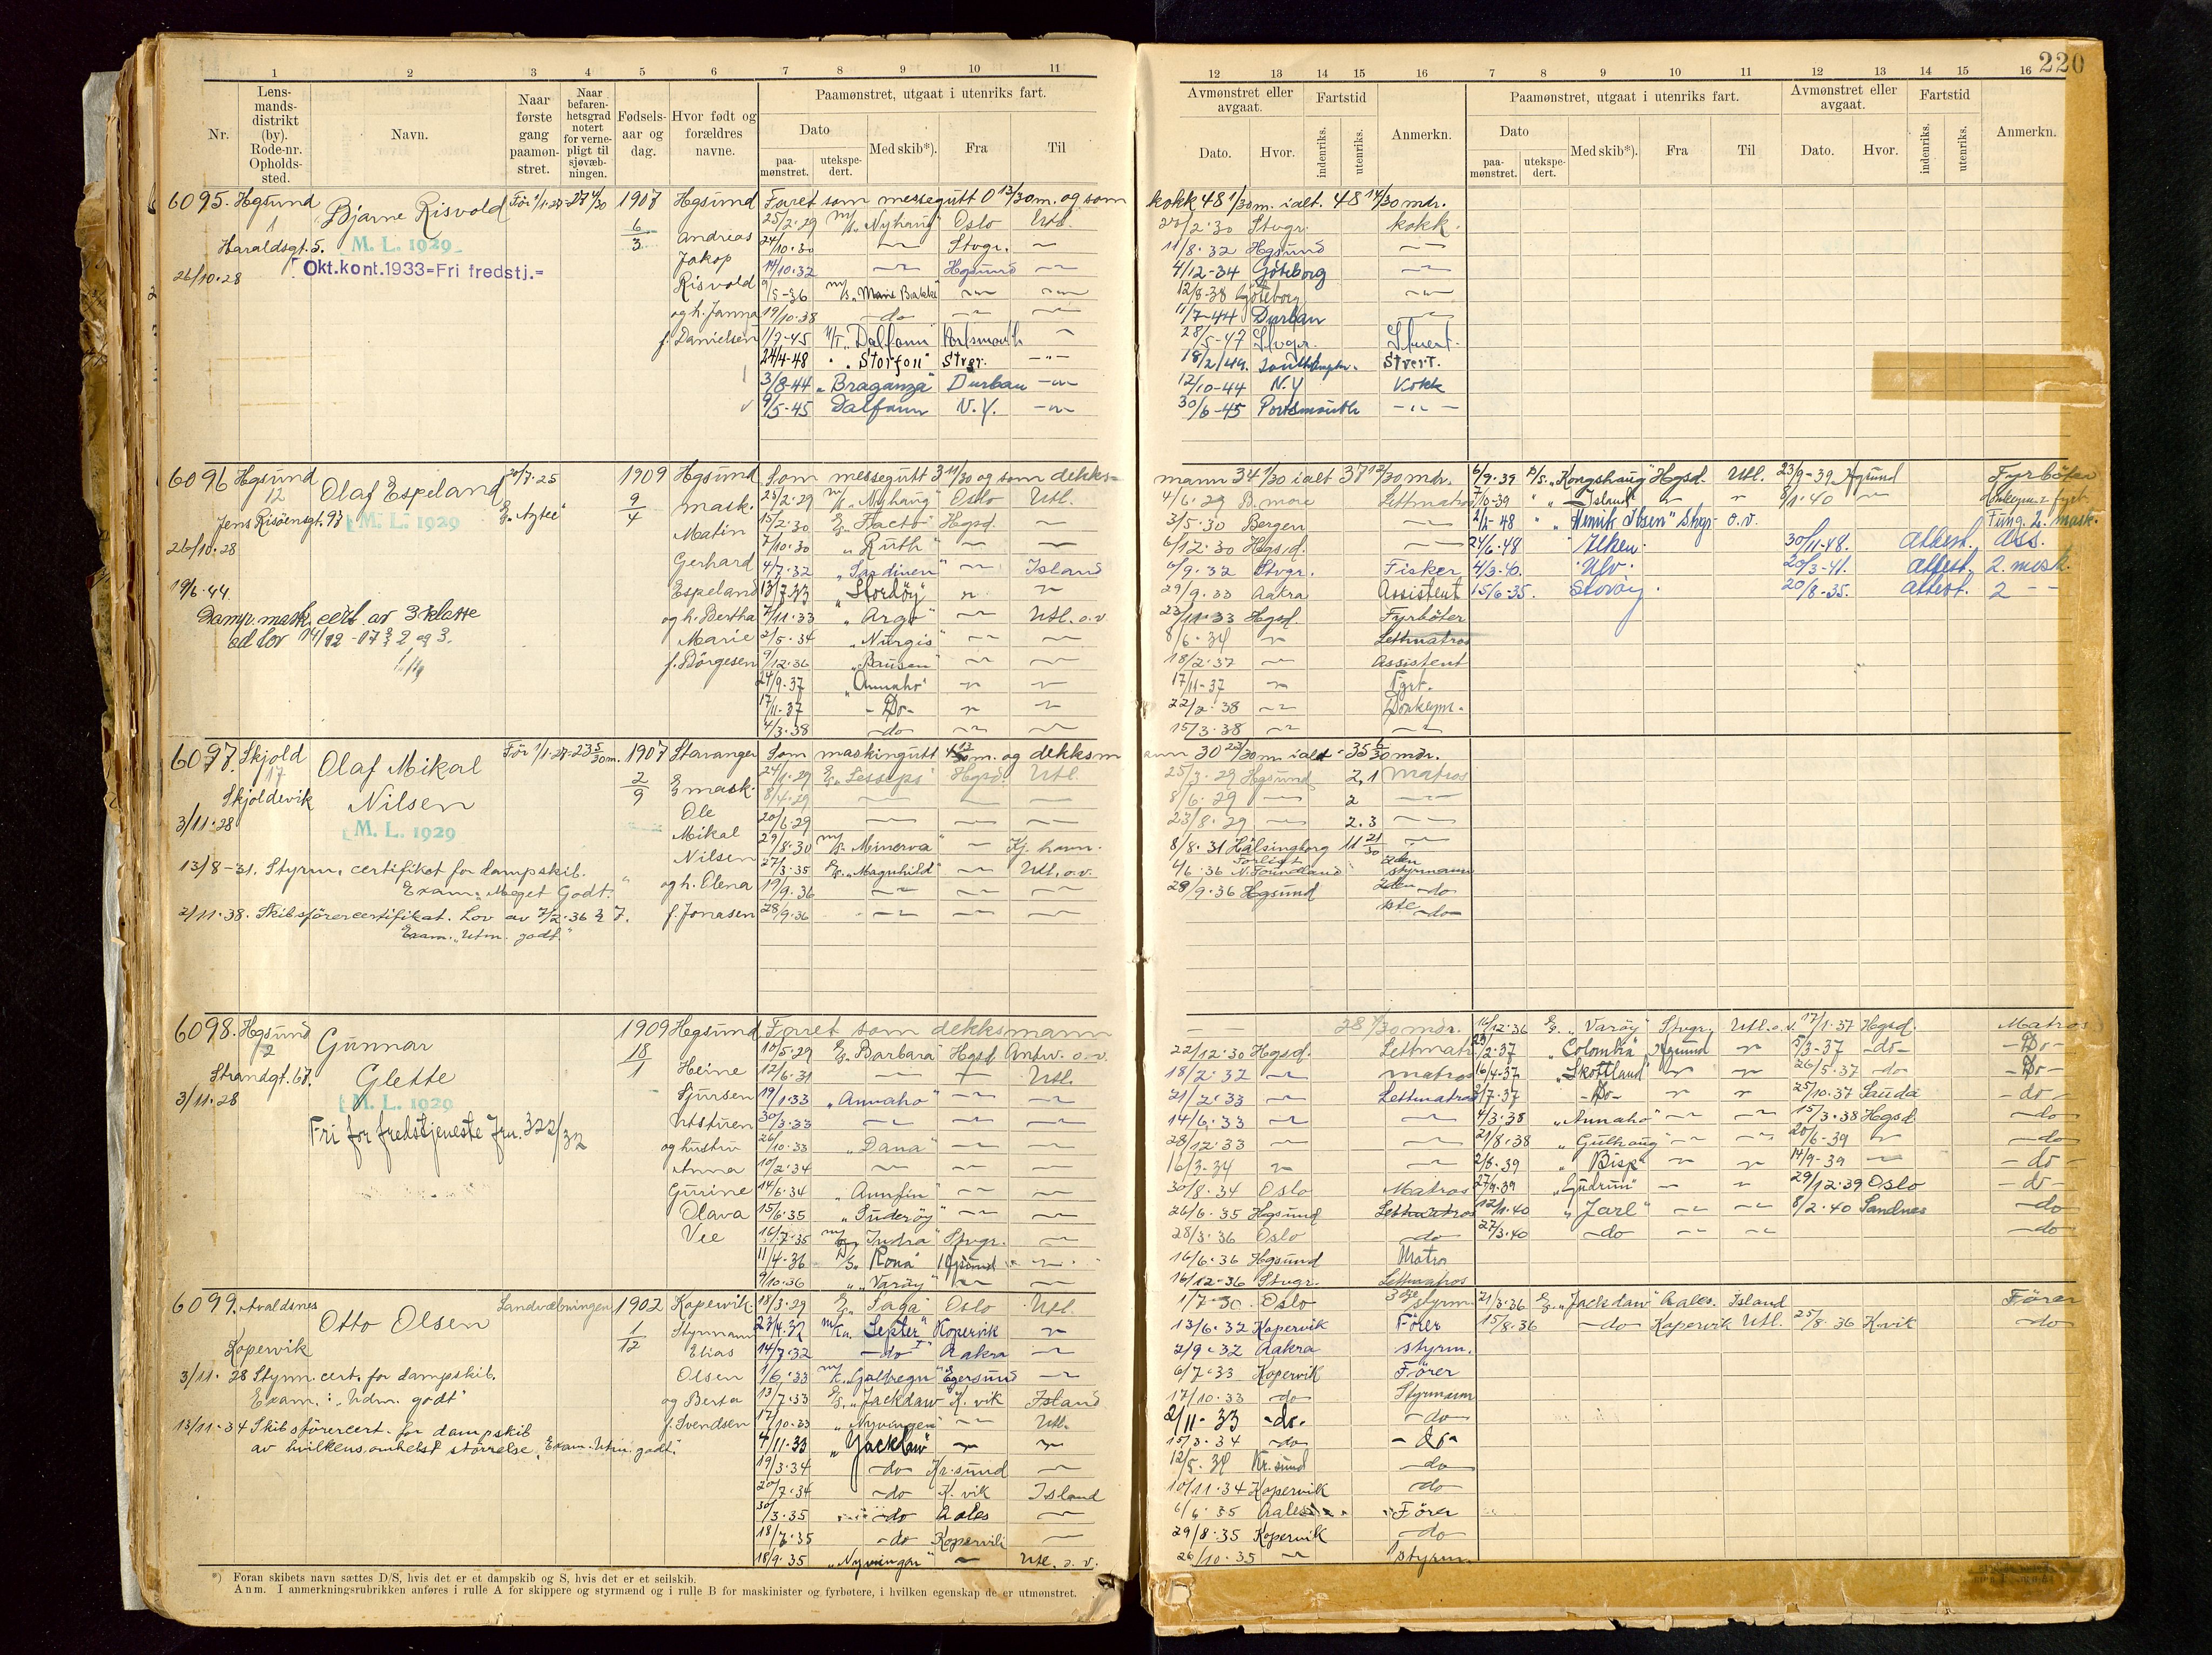 220
1 2 3 4 5 6 7 8 9 10 11
12 13 14 15 16 7 8 9 10 11 12 13 14 15 16
Nr.
Lens-
mands-
distrikt
(by).
Rode-nr.
Opholds-
sted.
Navn.
Naar
første
gang
paamøn-
stret.
Naar
befaren-
hetsgrad
notert
for verne-
pligt til
sjøvæb-
ningen.
Fødsels-
aar og
dag.
Hvor født og
forældres
navne.
Paamønstret, utgaat i utenriks fart.
Dato
paa-
mønstret.
utekspe-
dert.
Med skib*).
Fra
Til
Avmønstret eller
avgaat.
Dato.
Hvor.
Fartstid
indenriks.
utenriks.
Anmerkn.
Paamønstret, utgaat i utenriks fart.
Dato
paa-
mønstret.
utekspe-
dert.
Med skib*).
Fra
Til
Avmønstret eller
avgaat.
Dato.
Hvor.
Fartstid
indenriks.
utenriks.
Anmerkn.
6095. Hgsund
1
Haraldsgt. 5.
26/10.28
Bjarne Risvold
M. L. 1929
Okt.kont.1933=Fri fredstj.=
Før 1/1-27
1907
6/3
Hgsund
Andreas
Jakop
Risvold
og h. Janna
f. Danielsen
Faret som messegutt 0 13/30 m. og som kokk 48 1/30 m. ialt. 48 14/30 mdr.
25/2.29 m/s "Nyhaug" Oslo Utl. Stvgr. kokk.
24/10.30 Stvgr. 11/8.32 Hgsund
14/10.32 Hgsund 4/12-34 Göteborg
9/5-36 m/s "Marie Bakke" 12/8-38 Göteborg
19/10.38 do 11/7-44 Durban
1/9-45 M/T "Dalfonn" Portsmouth 28/5-47 Stvgr. Stuert.
24/4-48 " Storfon" Stvgr. 18/2/49. Stvert.
3/8-44 "Braganza" Durban 12/10-44 N.Y Kokk
9/5-45 Dalfonn N.Y. 30/6-45 Portsmouth
6096 Hgsund
12
Jens Risöensgt. 93
26/10.28
Olaf Espeland
M. L. 1929
20/7.25
1909
9/4
Hgsund
mask.
Matin
Gerhard
Espeland
og h. Bertha
Marie
f. Börgesen
19/6.44
Damp. mask. cert. av 3 klasse
Som messegutt 3 11/30 og som dekks=mann 34 1/30 ialt 37 12/30 mdr.
25/2.29 m/s "Nyhaug" Oslo Utl. 4/6.29 B.more Lettmatros
15/2.30 Hgsd. 3/5.30 Bergen
7/10.30 "Ruth" 6/12.30 Hgsd.
4/7.32 "Sardinen" Island 6/9.32 Stvgr. Fisker
13/7.33 "Stordöy" 29/9.33 Aakra Assistent
7/11.33 "Argo" Utl. o.v. 23/11.33 Hgsd. Fyrböter
2/5.34 "Nurgis" 8/6.34 Lettmatros
9/12.36 18/2.37 Assistent
24/9.37 "Annaho" 17/11-37 Fyrb.
17/11.37 -Do- 22/2.38 Donkeym.
4/3.38 do 15/3.38
6/9.39 D/S. "Kongshaug" Hgsd. Utl. 23/9-39 Hgsund Fyrböter
7/10-39 " "Island" 8/1.40 Donkeym. & fyrb.
2/2-48 " "Henrik Ibsen" Stvgr. o.v. Fung. 2. mask.
24/6.48 Ilken. 30/11-48. attest. Ass.
4/3-40. Ulv. 20/3-41. attest. 2. mask.
15/6-35. Storöy. 20/8-35. attest. 2 - -
6097. Skjold
17
Skjoldevik
3/11.28
Olaf Mikal
Nilsen
M. L. 1929
Før 1/1-27
1907
2/9
Stavanger
mask.
Ole
Mikal
Nilsen
og h. Elena
f. Jonasen
13/8-31. Styrm. certifikat for dampskib.
Exam. "Meget Godt."
2/11.38. Skibsförercertifikat. Lov av 7/2.36 § 7.
Exam. "Utm. godt."
Som maskingutt og dekksmann 30 23/30 m. ialt 35 6/30 mdr.
24/1.29 "Lesseps" Hgsd. Utl. 25/3.29 Hgsund 2,1 Matros
8/4.29 8/6.29 2
20/6.29 23/8.29 2.3
29/8.30 m/s. "Minerva" Kj. havn. 8/8.31 Hälsingborg 11 21/30
27/3.35 "Magnhild" Utl. o.v. 4/6.36 Forlist N.Foundland 2den styrmann
19/9.36 28/9.36 Hgsund 2den do
28/9.36 1ste do
6098. Hgsund
2
Strandgt. 67.
3/11.28
Gunnar
Glette
M. L. 1929
Fri for fredstjeneste Jrn. 322/32
1909
18/1
Hgsund
Heine
Sjursen
Utstuen
og hustru
Anna
Gurine
Olava
Vee
Faret som dekksmann 28 1/30 mdr.
10/5.29 "Barbara" Hgsd. Antw. o.v. 22/12.30 Hgsd. Lettmatr
12/6.31 Utl. 18/2.32 matros
19/1.33 "Annaho" 21/2.33 Lettmatros
30/3.33 14/6.33
26/10.33 "Dana" 28/12.33
10/2.34 16/3-34
14/6.34 "Annfin" 30/8.34 Oslo Matros
15/6.35 "Suderöy" 26/6.35 Hgsund Lettmatros
16/7.35 "Indra" Stvgr. 28/3.36 Oslo do
11/4-36 D/S. "Rona" Hgsund 16/6.36 Hgsund Matro
9/10.36 "Varöy" 16/12-36 Stvgr. Lettmatros
16/12.36 "Varöy" Stvgr. Utl. o.v. 17/1.37 Hgsd. Matros
"Colombia" Hgsund 5/3-37 -do- -Do-
6/4-37 "Skottland" 26/5.37 do -Do-
2/7.37 -Do- 25/10.37 Sauda -do-
4/3.38 "Annaho" 15/3.38 Hgsd. do
21/8.38 "Gulhaug" 20/6-39 do
2/8.39 "Bisp" 14/9-39 -do-
27/9.39 "Gudrun" 29/12.39 Oslo -do-
12/1.40 "Jarl" 8/2.40 Sandnes do
27/3.40 do do
6099. Avaldsnes
Kopervik
Otto Olsen
Landvæbningen
1902
1/12
Kopervik.
Styrmann
Elias
Olsen
og Berta
f. Svendsen
3/11.28 Styrm. cert. for dampskib.
Exam.: "Udm. godt"
13/11-34 Skibsförercert. for dampskib
av hvilkensomhelst størrelse. Exam. "Utm. godt."
18/3.29 "Saga" Oslo Utl. 1/7-30. Oslo 3dje styrm.
23/4.32 "Lepter" Kopervik 13/6.32 Kopervik Förer
14/7.32 do Aakra 2/9-32 Aakra styrm.
1/6.33 Egersund 6/7.33 Kopervik Förer
13/7.33 "Jackdaw" K.vik Island 17/10.33 do Styrmann
17/10.33 "Nyvingen" Utl. 2/11-33 -do- do
4/11.33 "Jackdaw" 15/3.34 do -do-
19/3.34 do Kr.sund 12/5.34 Kr.sund do
20/7.34 do K.vik Island 10/11.34 Kopervik do
30/3.35 do Aales 6/6.35 Aales Förer
18/7.35 do Kopervik 29/8.35 Kopervik do
18/9.35 "Nyvingen" Utl. o.v. 26/10.35 styrm.
21/3.36 "Jackdaw" Aales. Island Förer
15/8.36 do Kopervik Utl. 25/8.36 K.vik do
*) Foran skibets navn sættes D/S, hvis det er et dampskib og S, hvis det er et seilskib.
Anm. I anmerkningsrubrikken anføres i rulle A for skippere og styrmænd og i rulle B for maskinister og fyrbøtere, i hvilken egenskap de er utmønstret.